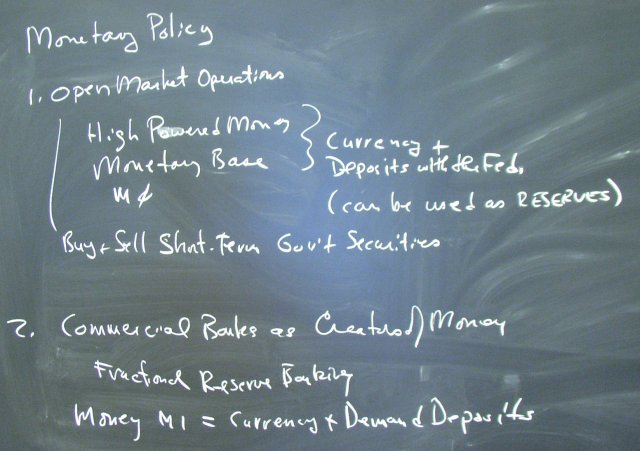 Monetary Policy
1. Open Market Operations
High Powered Money
Monetary Base
M ¢
Currency +
Deposits with the Fed.
(can be used as RESERVES)
Buy + Sell Short-Term Gov't Securities
2. Commercial Banks as Creators of Money
Fractional Reserve Banking
Money M1 = Currency + Demand Deposits